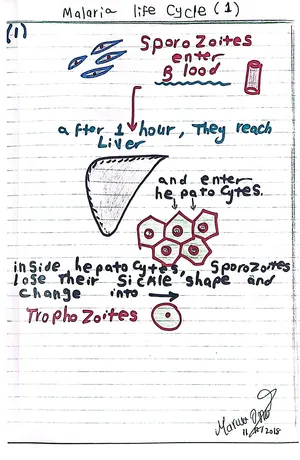 Malaria life Cycle (1)
(1)
SporoZoites
enter
Blood
after 1 hour, They reach
Liver
and enter
hepatocytes.
inside hepatocytes, Sporozoites
lose Their Sickle shape and
Change into
TrophoZoites